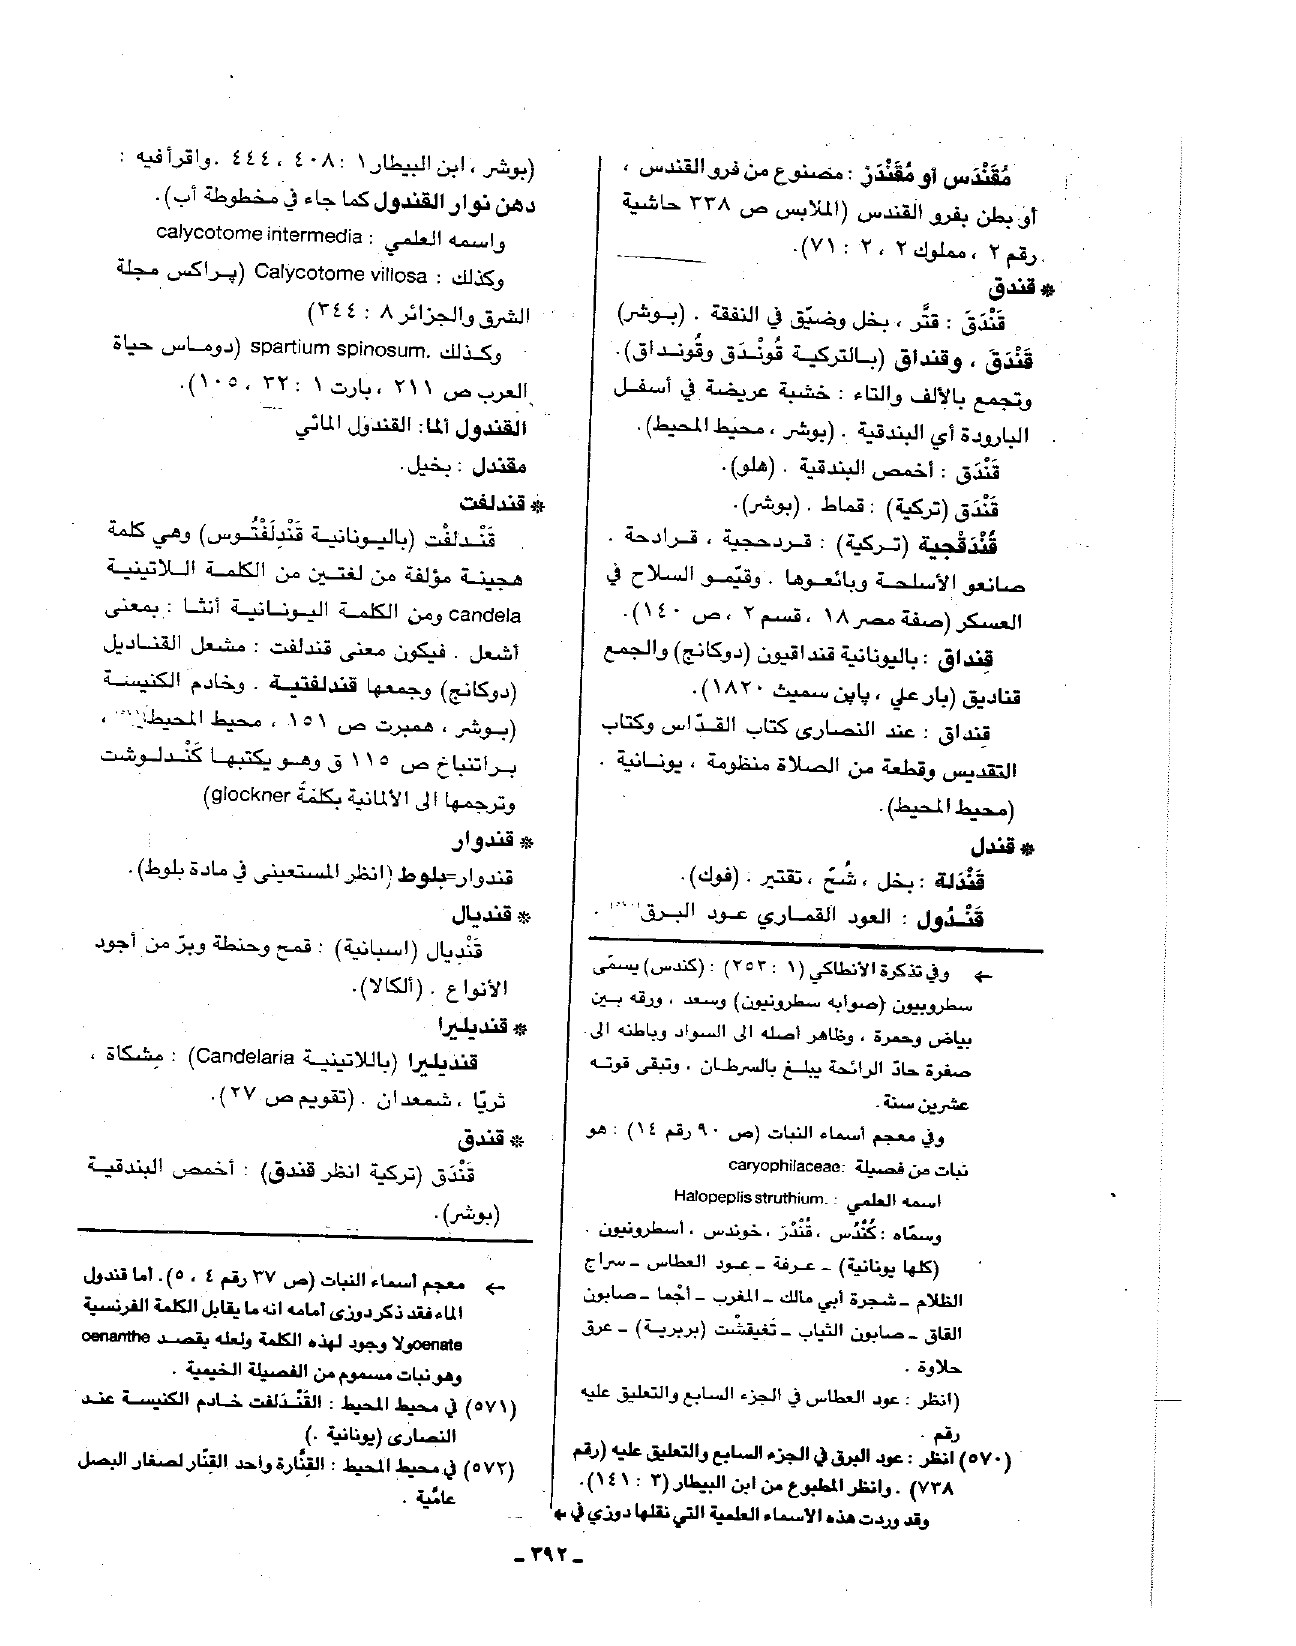 مُقَنْدَس أو مُقَنْدَز : مصنوع من فرو القندس ،
أو بطن بفرو القندس (الملابس ص ٣٣٨ حاشية
رقم ٢ ، مملوك ٢ ، ٢ : ٧١).
* قندق
قَنْدَقَ : قتَّر ، بخل وضيّق في النفقة . (بوشر)
قَنْدَقَ ، وقنداق (بالتركية قُونْدَق وقُونداق).
وتجمع بالألف والتاء : خشبة عريضة في أسفل
البارودة أي البندقية . (بوشر ، محيط المحيط).
قَنْدَق : أخمص البندقية . (هلو).
قَنْدَق (تركية) : قماط . (بوشر).
قُنْدَقْجية (تركية) : قردحجية ، قرادحة .
صانعو الأسلحة وبائعوها . وقيّمو السلاح في
العسكر (صفة مصر ١٨ ، قسم ٢ ، ص ١٤٠).
قِنداق : باليونانية قنداقيون (دوكانج) والجمع
قناديق (بار علي ، پاين سميث ١٨٢٠).
قِنداق : عند النصارى كتاب القدّاس وكتاب
التقديس وقطعة من الصلاة منظومة ، يونانية .
(محيط المحيط).
* قندل
قَنْدَلة : بخل ، شُحّ ، تقتير . (فوك).
قَنْدُول : العود القماري عود البرق .
← وفي تذكرة الأنطاكي (١ : ٢٥٣) : (كندس) يسمّى
سطروبيون (صوابه سطرونيون) وسعد ، ورقه بين
بياض وحمرة ، وظاهر أصله الى السواد وباطنه الى
صفرة حادّ الرائحة يبلغ بالسرطان ، وتبقى قوته
عشرين سنة .
وفي معجم أسماء النبات (ص ٩٠ رقم ١٤) : هو
نبات من فصيلة :caryophilaceae
اسمه العلمي : .Halopeplis struthium
وسمّاه : كُنْدُس ، قُنْدُز ، خوندس ، أسطرونيون .
(كلها يونانية) - عرفة - عود العطاس - سراج
الظلام - شجرة أبي مالك - المغرب - أخما - صابون
القاق - صابون الثياب - تَغيقَشْت (بربرية) - عرق
حلاوة .
(انظر : عود العطاس في الجزء السابع والتعليق عليه
رقم .
(٥٧٠) انظر : عود البرق في الجزء السابع والتعليق عليه (رقم
٧٣٨) . وانظر المطبوع من ابن البيطار (٣ : ١٤١).
وقد وردت هذه الاسماء العلمية التي نقلها دوزي في ←
(بوشر ، ابن البيطار ١ : ٤٠٨ ، ٤٤٤ . واقرأ فيه :
دهن نوار القندول كما جاء في مخطوطة أب).
واسمه العلمي : calycotome intermedia
وكذلك : Calycotome villosa (پراكس مجلة
الشرق والجزائر ٨ : ٣٤٤)
وكذلك .spartium spinosum (دوماس حياة
العرب ص ٢١١ ، بارت ١ : ٣٢ ، ١٠٥).
القندول ألما : القندول المائي
مقندل : بخيل .
* قندلفت
قَنْدلفْت (باليونانية قَنْدِلَفْتُوس) وهي كلمة
هجينة مؤلفة من لغتين من الكلمة اللاتينية
candela ومن الكلمة اليونانية أنتا : بمعنى
أشعل . فيكون معنى قندلفت : مشعل القناديل
(دوكانج) وجمعها قندلفتية . وخادم الكنيسة
(بوشر ، همبرت ص ١٥١ ، محيط المحيط) ،
براتنباخ ص ١١٥ ق وهو يكتبها كَنْدلوشت
وترجمها الى الألمانية بكلمة glockner)
* قندوار
قندوار=بلوط (انظر المستعيني في مادة بلوط).
* قنديال
قَنْدِيال (اسبانية) : قمح وحنطة وبرّ من أجود
الأنواع . (ألكالا).
* قنديليرا
قنديليرا (باللاتينية Candelaria) : مشكاة ،
ثريّا ، شمعدان . (تقويم ص ٢٧).
* قندق
قَنْدَق (تركية انظر قندق) : أخمص البندقية
(بوشر).
← معجم أسماء النبات (ص ٣٧ رقم ٤ ، ٥). أما قندول
الماء فقد ذكر دوزي أمامه انه ما يقابل الكلمة الفرنسية
oenate ولا وجود لهذه الكلمة ولعله يقصد oenanthe
وهو نبات مسموم من الفصيلة الخيمية .
(٥٧١) في محيط المحيط : القَنْدَلفت خادم الكنيسة عند
النصارى (يونانية .)
(٥٧٢) في محيط المحيط : القنّارة واحد القنّار لصغار البصل
عاميّة .
- ٣٩٢ -